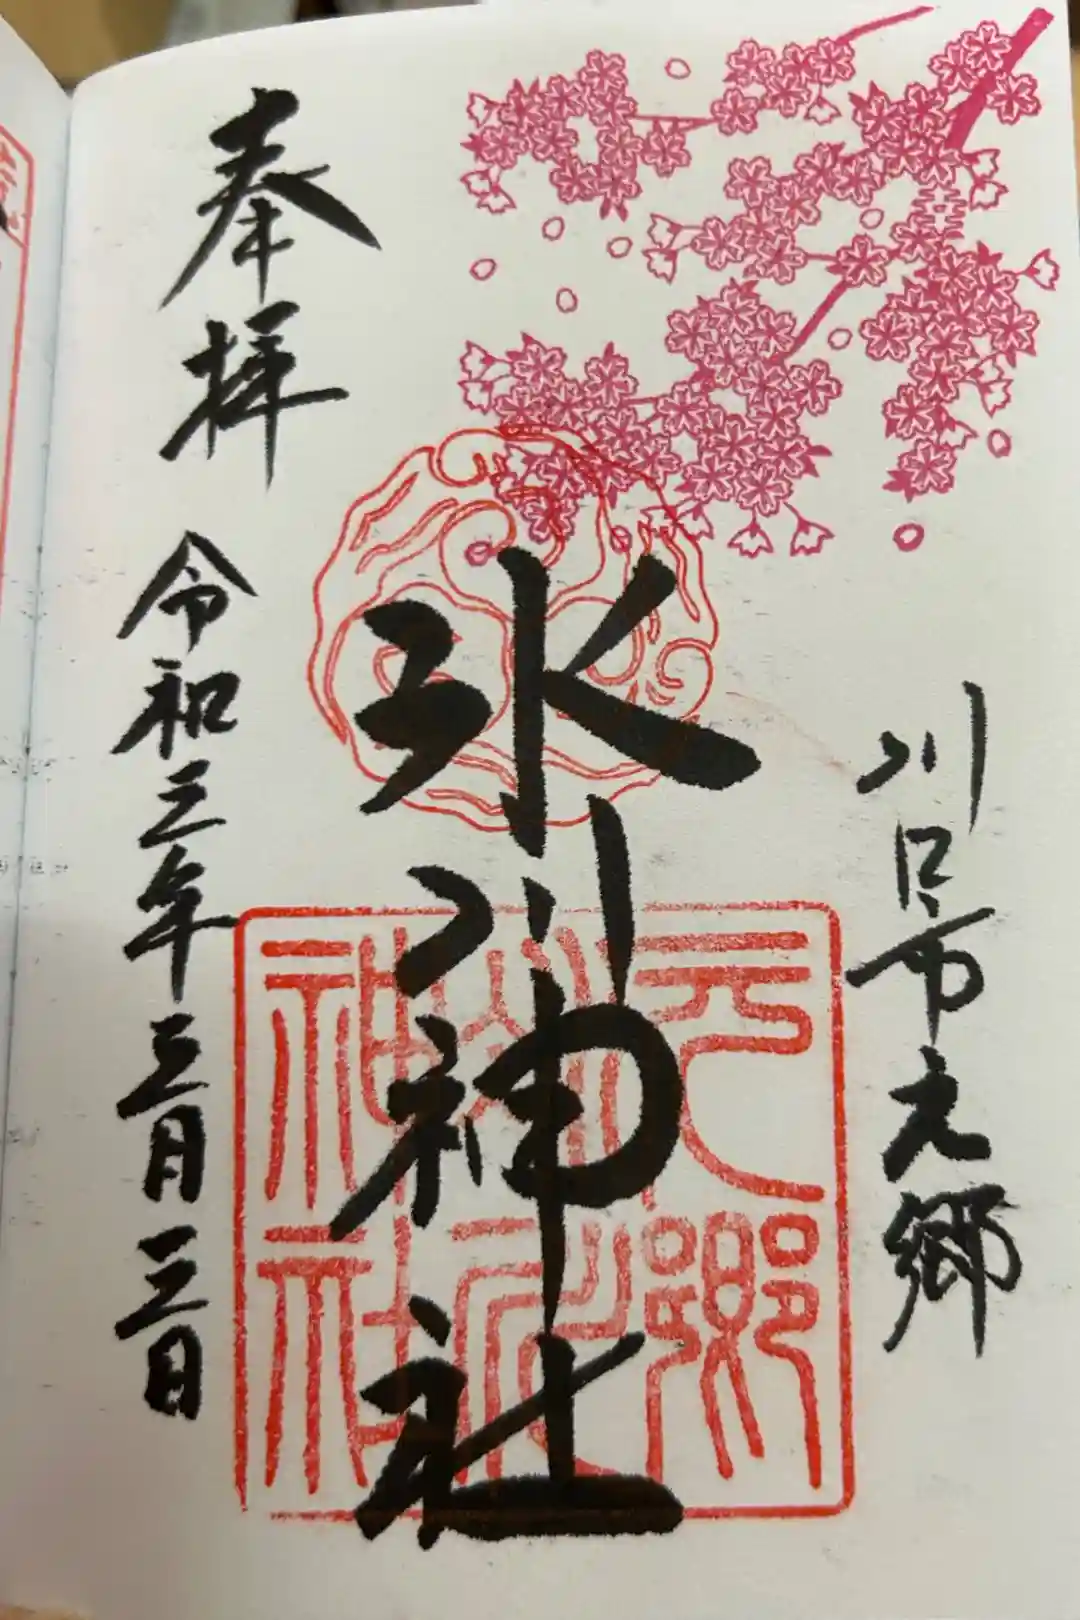 川口市元郷
氷川神社
奉拝
令和三年三月三日
元郷
氷川
神社